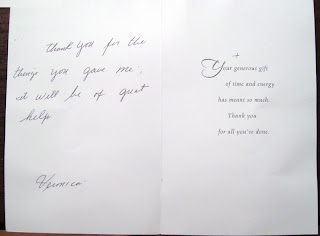 Thank you for the
things you gave me,
it will be of great
help
Veronica
Your generous gift
of time and energy
has meant so much.
Thank you
for all you've done.